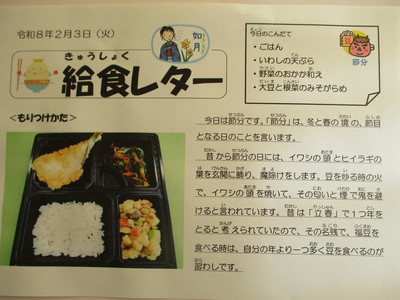 令和8年2月3日(火)
如月
きゅうしょく
給食レター
今日のこんだて
・ごはん
・いわしの天ぷら
・野菜のおかか和え
・大豆と根菜のみそがらめ
節分
<もりつけかた>
今日は節分です。「節分」は、冬と春の境の、節目
となる日のことを言います。
昔から節分の日には、イワシの頭とヒイラギの
葉を玄関に飾り、魔除けをします。豆を炒る時の火
で、イワシの頭を焼いて、その匂いと煙で鬼を避
けると言われています。昔は「立春」で1つ年を
とると考えられていたので、その名残で、福豆を
食べる時は、自分の年より一つ多く豆を食べるのが
習わしです。